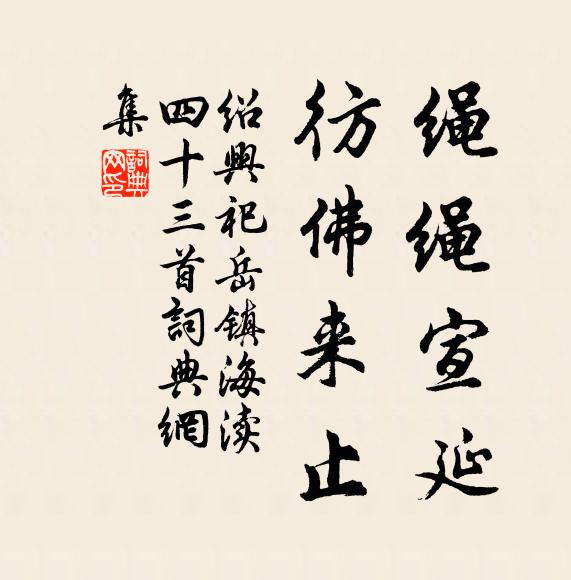 绳绳宣延
彷佛来止
绍興祀岳镇海渎
四十三首詞典網
集
詞典网印